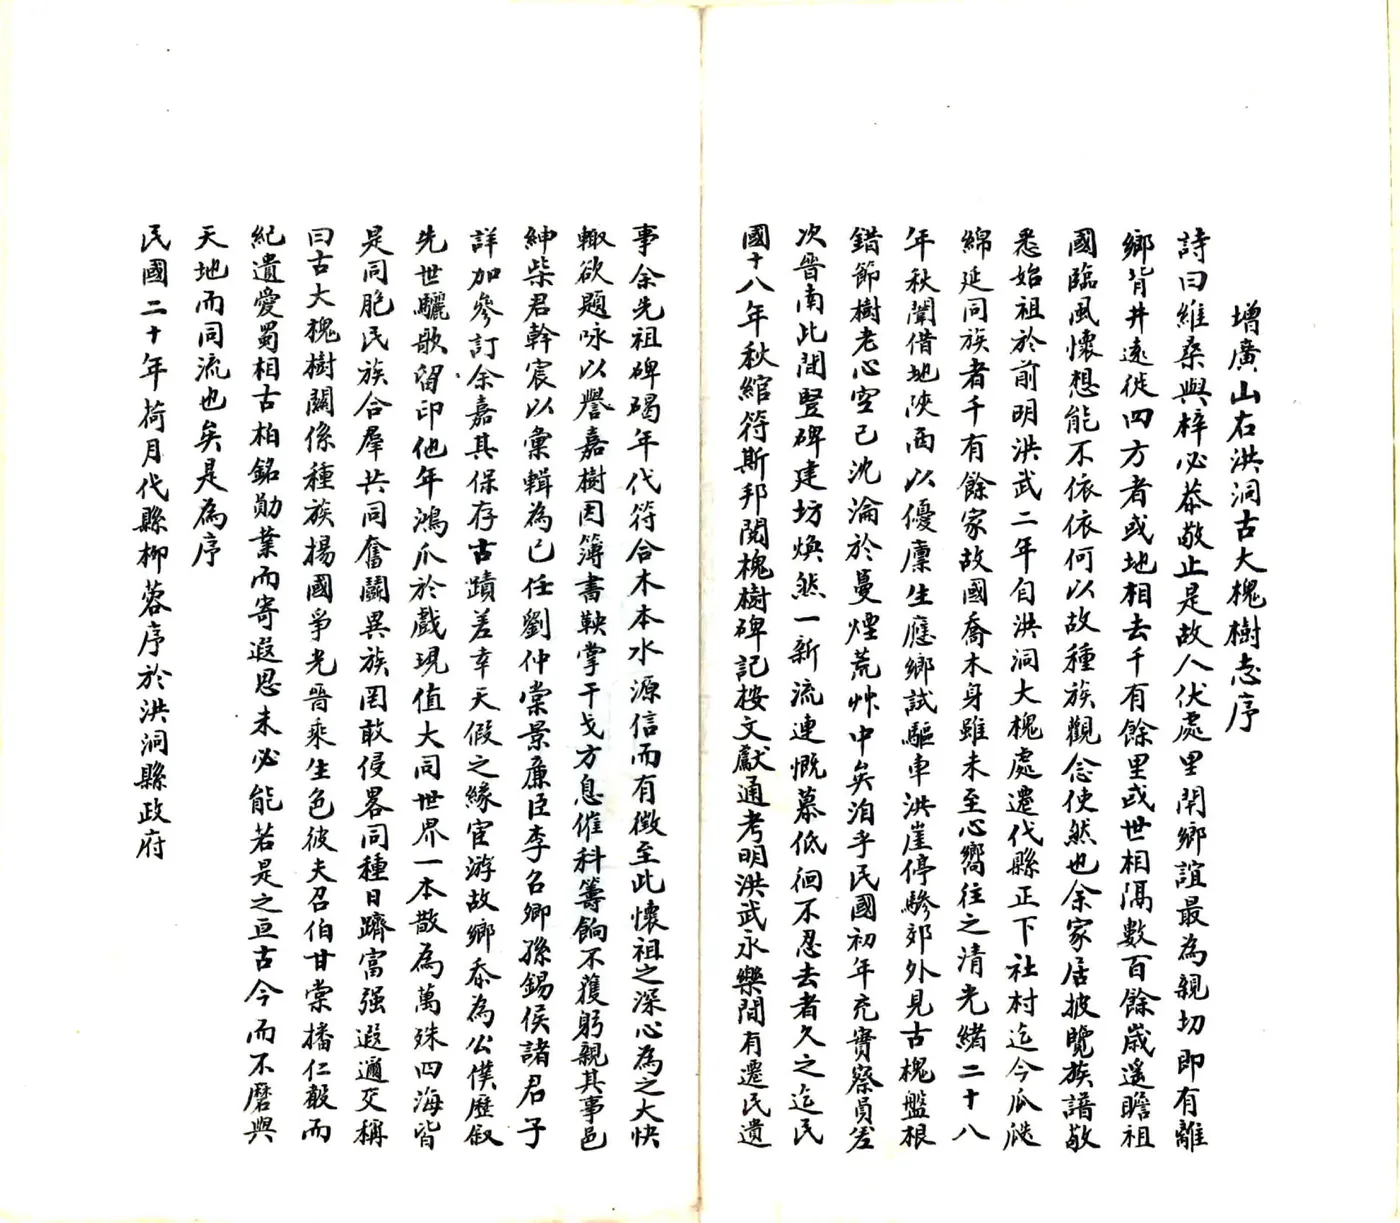 增廣山右洪洞古大槐樹志序
詩曰維桑與梓必恭敬止是故人伏處里閈鄉誼最為親切即有離
鄉背井遠徙四方者或地相去千有餘里或世相隔數百餘歲遙瞻祖
國臨風懷想能不依依何以故種族觀念使然也余家居披覽族譜敬
悉始祖於前明洪武二年自洪洞大槐處遷代縣正下社村迄今瓜瓞
綿延同族者千有餘家故國喬木身雖未至心嚮往之清光緒二十八
年秋闈借地陝西以優廩生應鄉試驅車洪崖停驂郊外見古槐盤根
錯節樹老心空已沈淪於蔓煙荒艸中矣洎乎民國初年充實察員差
次晉南此間豎碑建坊煥然一新流連慨慕低徊不忍去者久之迄民
國十八年秋綰符斯邦閱槐樹碑記按文獻通考明洪武永樂間有遷民遺
事余先祖碑碣年代符合木本水源信而有徵至此懷祖之深心為之大快
輙欲題咏以譽嘉樹因簿書鞅掌干戈方息催科籌餉不獲躬親其事邑
紳柴君幹宸以彙輯為己任劉仲棠景廉臣李名卿孫錫侯諸君子
詳加參訂余嘉其保存古蹟差幸天假之緣宦游故鄉忝為公僕歷叙
先世驪歌留印他年鴻爪於戲現值大同世界一本散為萬殊四海皆
是同胞民族合羣共同奮鬬異族罔敢侵畧同種日躋富强遐邇交稱
曰古大槐樹關係種族揚國爭光晉乘生色彼夫召伯甘棠播仁聲而
紀遺愛蜀相古柏銘勛業而寄遐思未必能若是之亘古今而不磨與
天地而同流也矣是為序
民國二十年荷月代縣柳蓉序於洪洞縣政府